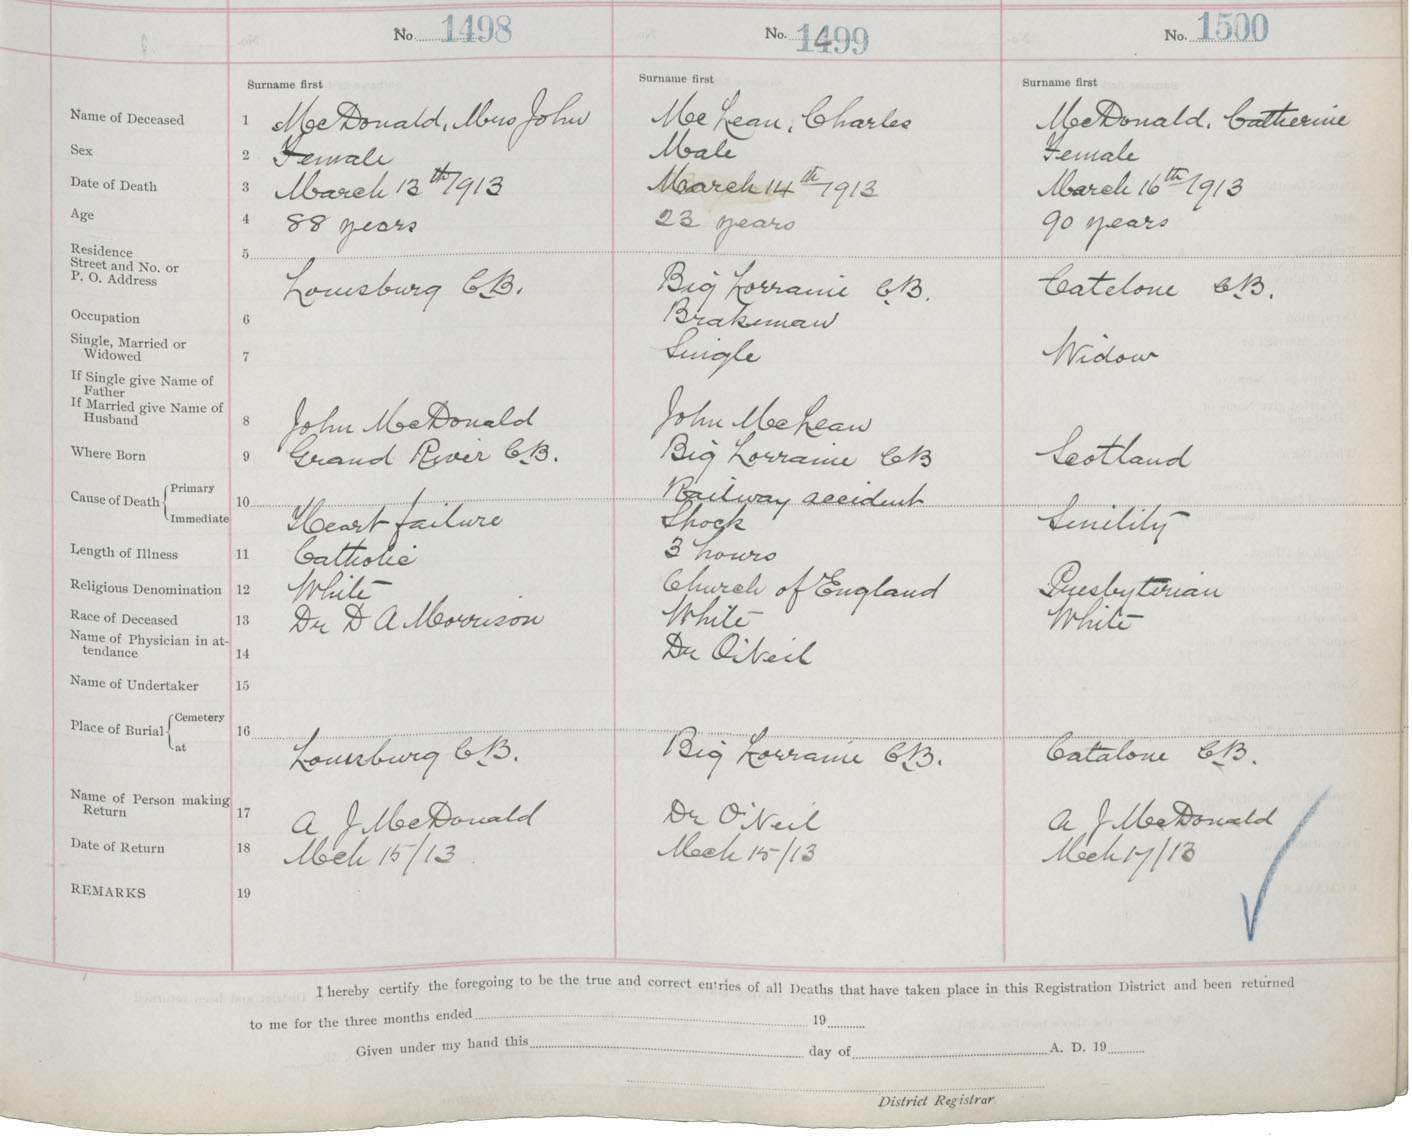 No. 1498 No. 1499 No. 1500
Surname first Surname first Surname first
Name of Deceased 1 McDonald, Mrs John McLean, Charles McDonald, Catherine
Sex 2 Female Male Female
Date of Death 3 March 13th/1913 March 14th/1913 March 16th/1913
Age 4 88 years 23 years 90 years
Residence 5
Street and No. or
P. O. Address Louisburg C.B. Big Lorraine C.B. Catelone C.B.
Occupation 6 Brakeman
Single, Married or
Widowed 7 Single Widow
If Single give Name of
Father
If Married give Name of
Husband 8 John McDonald John McLean
Where Born 9 Grand River C.B. Big Lorraine CB Scotland
Cause of Death { Primary 10 Railway accident
Immediate Heart failure Shock Senility
Length of Illness 11 Catholic 3 hours
Religious Denomination 12 White Church of England Presbyterian
Race of Deceased 13 Dr D A Morrison White White
Name of Physician in at-
tendance 14 Dr O'Neil
Name of Undertaker 15
Place of Burial { Cemetery 16
at Louisburg C.B. Big Lorraine C.B. Catalone C.B.
Name of Person making
Return 17 A J McDonald Dr O'Neil A J McDonald
Date of Return 18 Mch 15/13 Mch 15/13 Mch 17/13
REMARKS 19
I hereby certify the foregoing to be the true and correct entries of all Deaths that have taken place in this Registration District and been returned
to me for the three months ended 19
Given under my hand this day of A. D. 19
District Registrar.